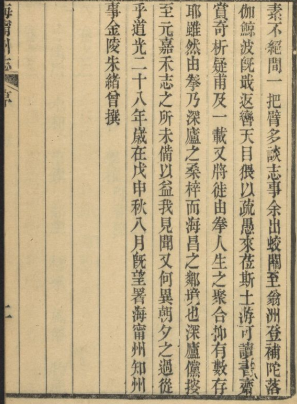 素不經聞一把臂多談志事余出蛟關至翁洲登補陀落
伽鯨波旣戢返轡天目猥以疏愚來莅斯土游可讀書齋
賞奇析疑甫及一載又將徙由拳人生之聚合抑有數存
耶雖然由拳乃深廬之桑梓而海昌之鄰境也深廬儻按
至元嘉禾志之所未備以益我見聞又何異朝夕之過從
乎道光二十八年歲在戊申秋八月旣望署海甯州知州
事金陵朱緒曾撰
海甯州志
序
二